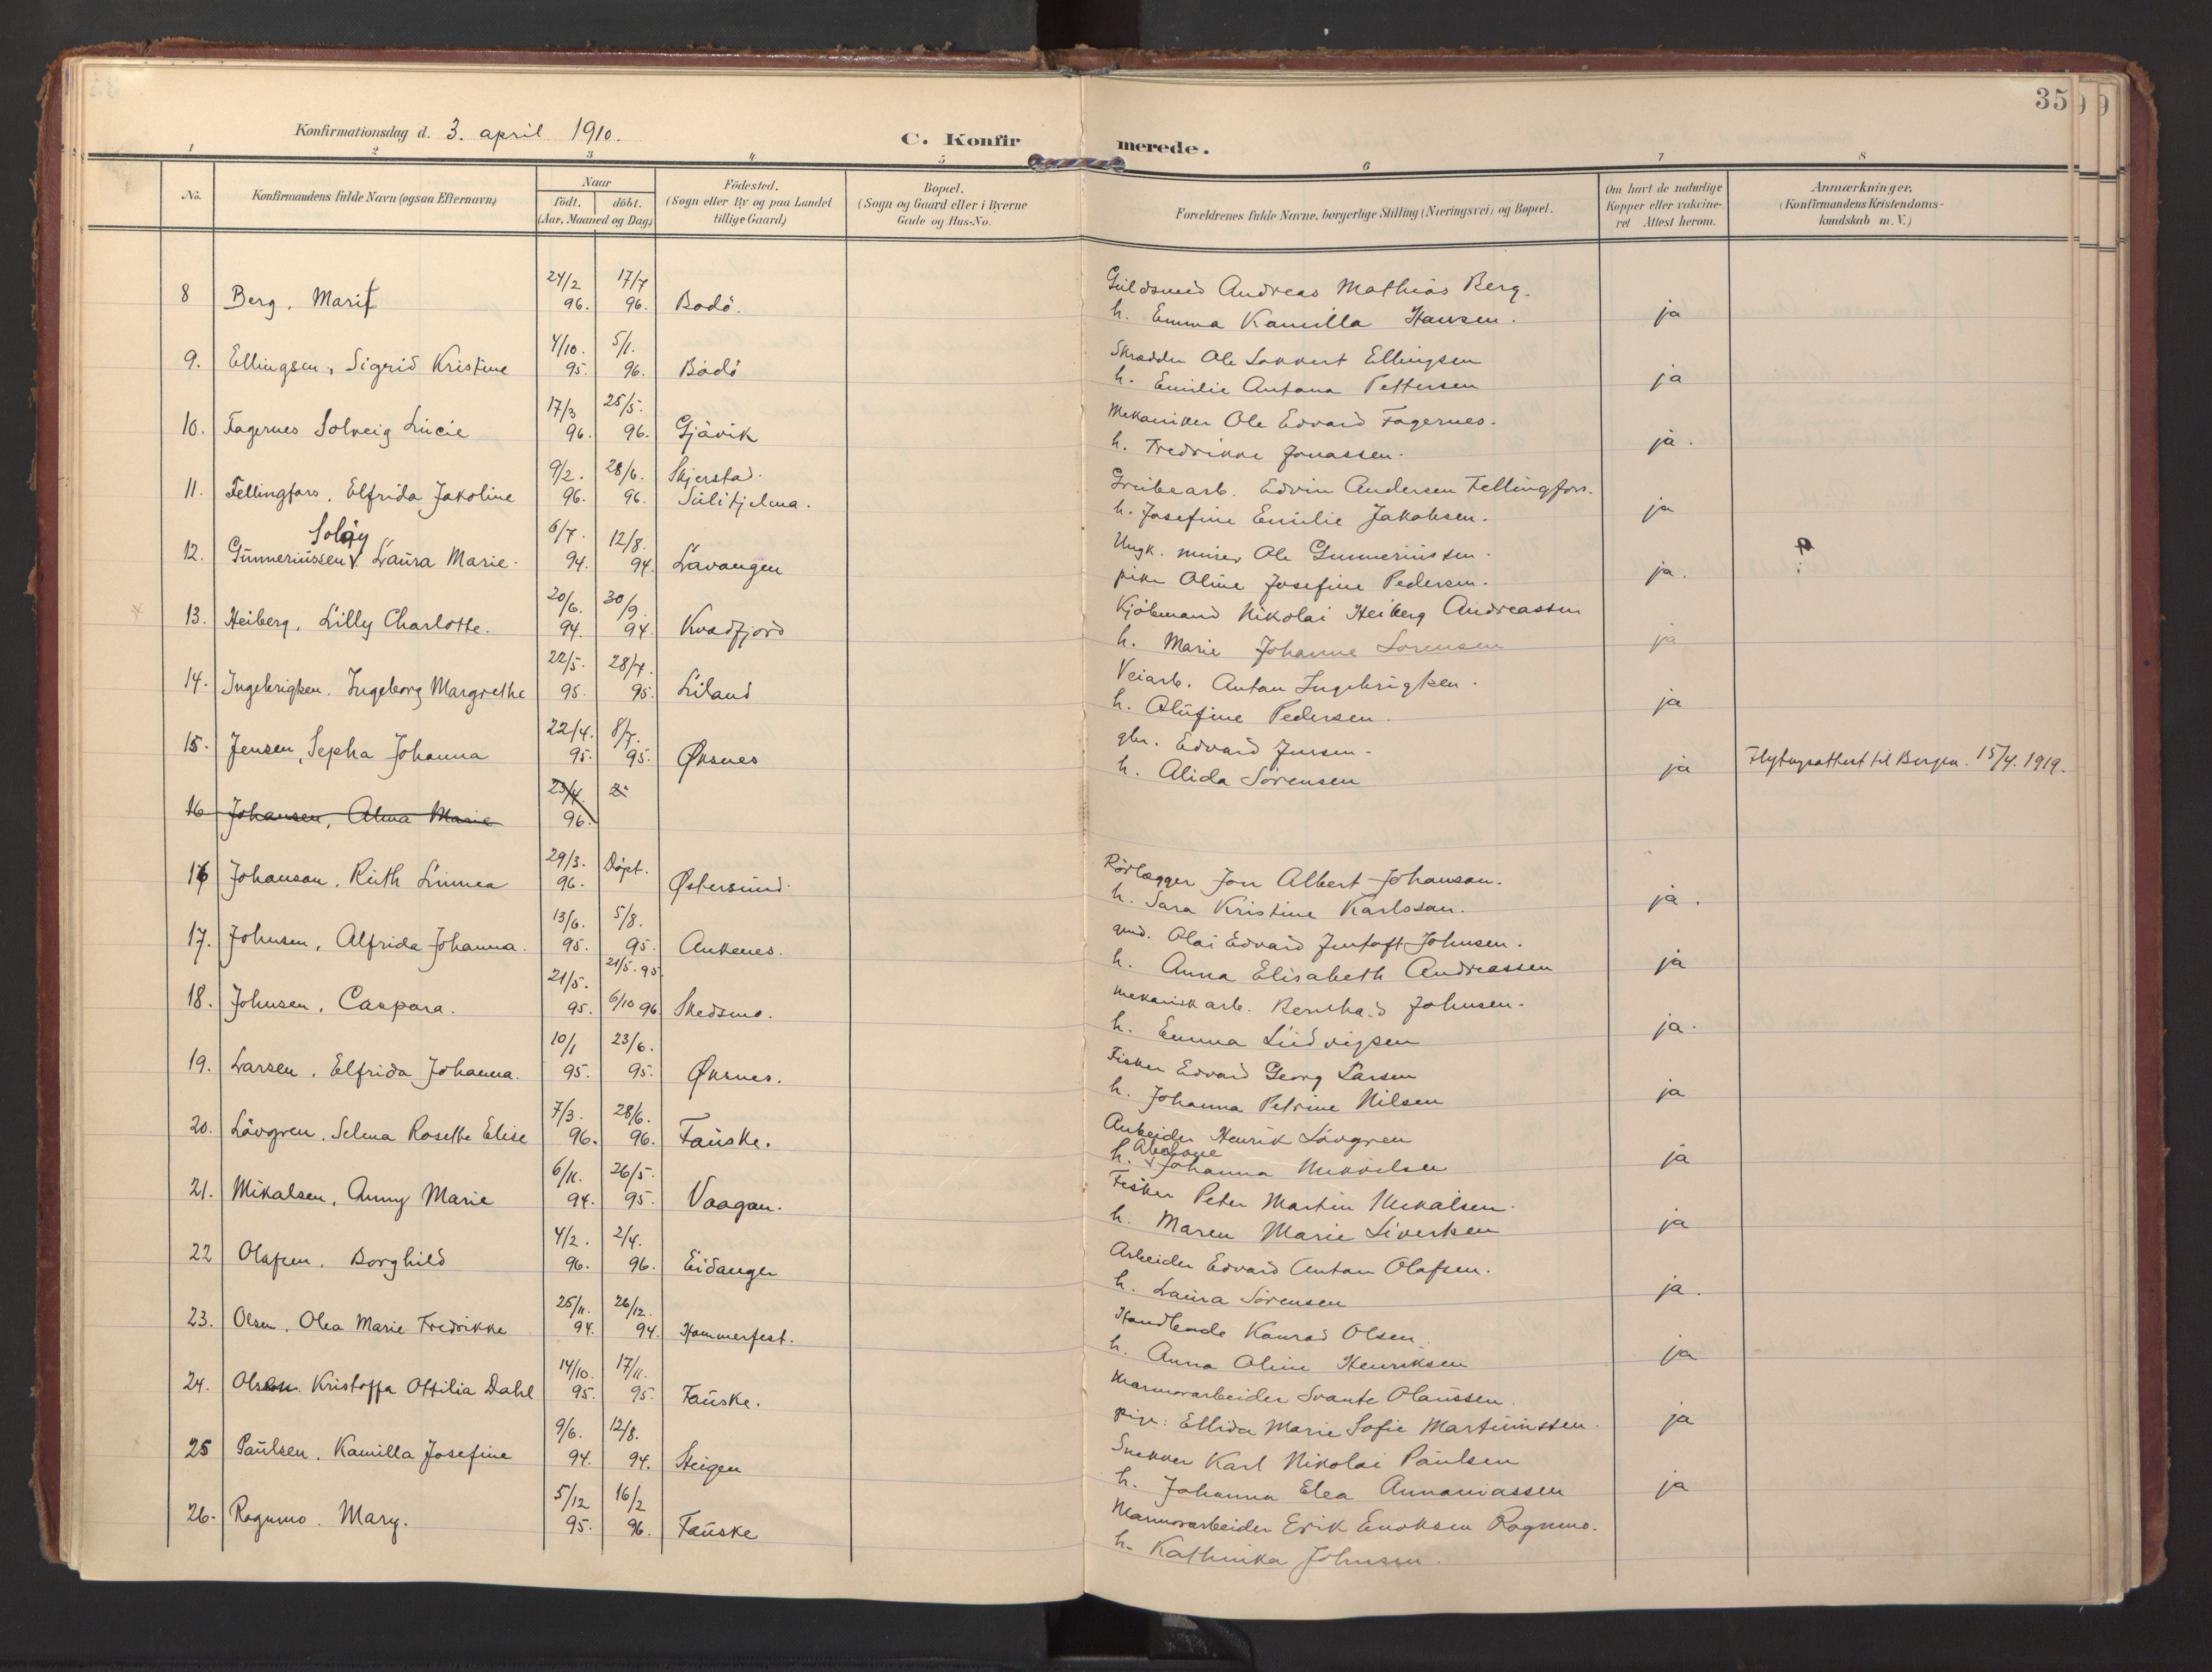 35
Konfirmationsdag d. 3. april 1910.
C. Konfirmerede.
1 2 3 4 5 6 7 8
No.
Konfirmandens fulde Navn (ogsaa Efternavn)
Naar
födt. döbt.
(Aar, Maaned og Dag)
Födested.
(Sogn eller By og paa Landet
tillige Gaard)
Bopæl.
(Sogn og Gaard eller i Byerne
Gade og Hus-No.
Forældrenes fulde Navne, borgerlige Stilling (Næringsvei) og Bopæl.
Om havt de naturlige
Kopper eller vakcine-
ret Attest herom.
Anmærkninger.
(Konfirmandens Kristendoms-
kundskab m. V.)
8 Berg, Marit 24/2 96. 17/7 96. Bodö.
Guldsmed Andreas Mathias Berg.
h. Emma Kamilla Hansen. ja
9. Ellingsen, Sigrid Kristine 4/10. 95. 5/1. 96. Bodö
Skrædder Ole Ellingsen
h. Emilie Antona Pettersen ja
10. Fagernes Solveig Lucie 17/3 96. 25/5. 96. Gjövik
Mekaniker Ole Edvard Fagernes.
h. Fredrikke Jonassen. ja.
11. Fellingfors, Elfrida Jakoline 9/2. 96. 28/6. 96. Skjerstad. Sulitjelma.
Grubearb. Edvin Andersen Fellingfors.
h. Josefine Emilie Jakobsen. ja
Solöy
12. Gunneriussen, Laura Marie. 6/7. 94. 12/8. 94. Lavangen
Ungk. murer Ole Gunneriussen.
pike Oline Josefine Pedersen. ja.
13. Heiberg, Lilly Charlotte. 20/6. 94. 30/9. 94. Kvædfjord
Kjöbmand Nikolai Heiberg Andreassen
h. Marie Johanne Sorensen ja
14. Ingebrigtsen. Ingeborg Margrethe 22/5. 95. 28/7. 95. Liland
Veiarb. Anton Ingebrigtsen.
h. Olufine Pedersen. ja
15. Jensen, Sepha Johanna 22/4. 95. 8/7. 95. Øksnes
gbr. Edvard Jensen.
h. Alida Sörensen ja Flytngsattest til Bergen. 15/4. 1919.
16 Johansen, Alma Marie 23/4. 96. 2
16 Johanson, Ruth Linnea 29/3. 96. Döpt. Østersund.
Rörlægger Jon Albert Johanson.
h. Sara Kristine Karlsson. ja.
17. Johnsen, Alfrida Johanna. 13/6. 95. 5/8. 95. Ankenes.
gmd. Olai Edvard Jentoft Johnsen.
h. Anna Elisabeth Andreassen ja
18. Johnsen, Caspara. 21/5. 95. 21/5. 95 6/10 96 Skedsmo.
Mekanisk arb. Bernhard Johnsen.
h. Emma Ludvigsen ja.
19. Larsen, Elfrida Johanna. 10/1 95. 23/6. 95. Øksnes.
Fisker Edvard Georg Larsen
h. Johanna Petrine Nilsen ja
20. Lövgren, Selma Rosette Elise 7/3. 96. 28/6. 96. Fauske.
Arbeider Henrik Lövgren
h. Johanna Mikkelsen ja
21. Mikalsen, Anny Marie 6/11. 94. 26/5. 95. Vaagan.
Fisker Peter Martin Mikalsen.
h. Maren Marie Sivertsen ja
22 Olafsen, Borghild 4/2. 96. 2/4. 96. Eidanger
Arbeider Edvard Anton Olafsen.
h. Laura Sörensen ja.
23. Olsen, Olea Marie Fredrikke 25/11. 94. 26/12. 94. Hammerfest.
Handlende Konrad Olsen.
h. Anna Oline Henriksen ja
24. Olsen. Kristoffa Ottilia Dahl 14/10. 95. 17/11. 95. Fauske.
Marmorarbeider Svante Olaussen.
pige: Ellida Marie Sofie Martinussen. ja
25 Paulsen, Kamilla Josefine 9/6. 94. 12/8. 94. Steigen
Snekker Karl Nikolai Paulsen
h. Johanna Elea Annaniassen ja
26. Rognmo. Mary. 5/12 95. 16/2 96. Fauske
Marmorarbeider Erik Enoksen Rognmo.
h. Kathinka Johnsen.